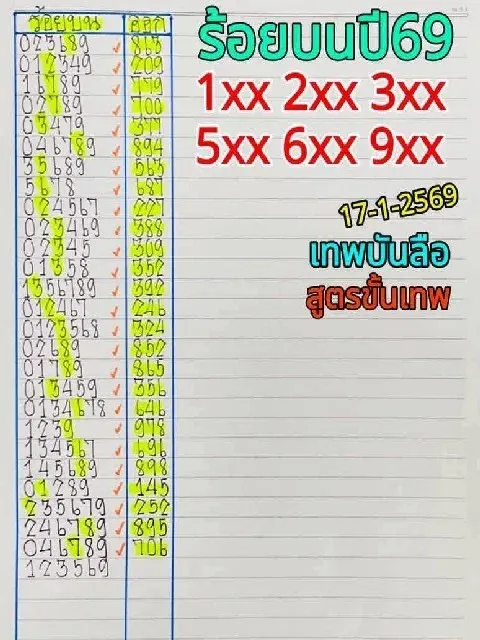 ร้อยบน ออก
023689 ✓ 863
012349 ✓ 209
16789 ✓ 779
02789 ✓ 700
03479 ✓ 377
046789 ✓ 894
35689 ✓ 563
5678 ✓ 687
024567 ✓ 227
023469 ✓ 388
02345 ✓ 309
01358 ✓ 352
1356789 ✓ 392
012467 ✓ 246
0123568 ✓ 324
02689 ✓ 852
01789 ✓ 865
013459 ✓ 356
0134678 ✓ 646
1239 ✓ 978
134567 ✓ 696
145689 ✓ 898
01289 ✓ 145
235679 ✓ 252
246789 ✓ 895
046789 ✓ 706
123569
ร้อยบนปี69
1xx 2xx 3xx
5xx 6xx 9xx
17-1-2569
เทพบันลือ
สูตรขั้นเทพ